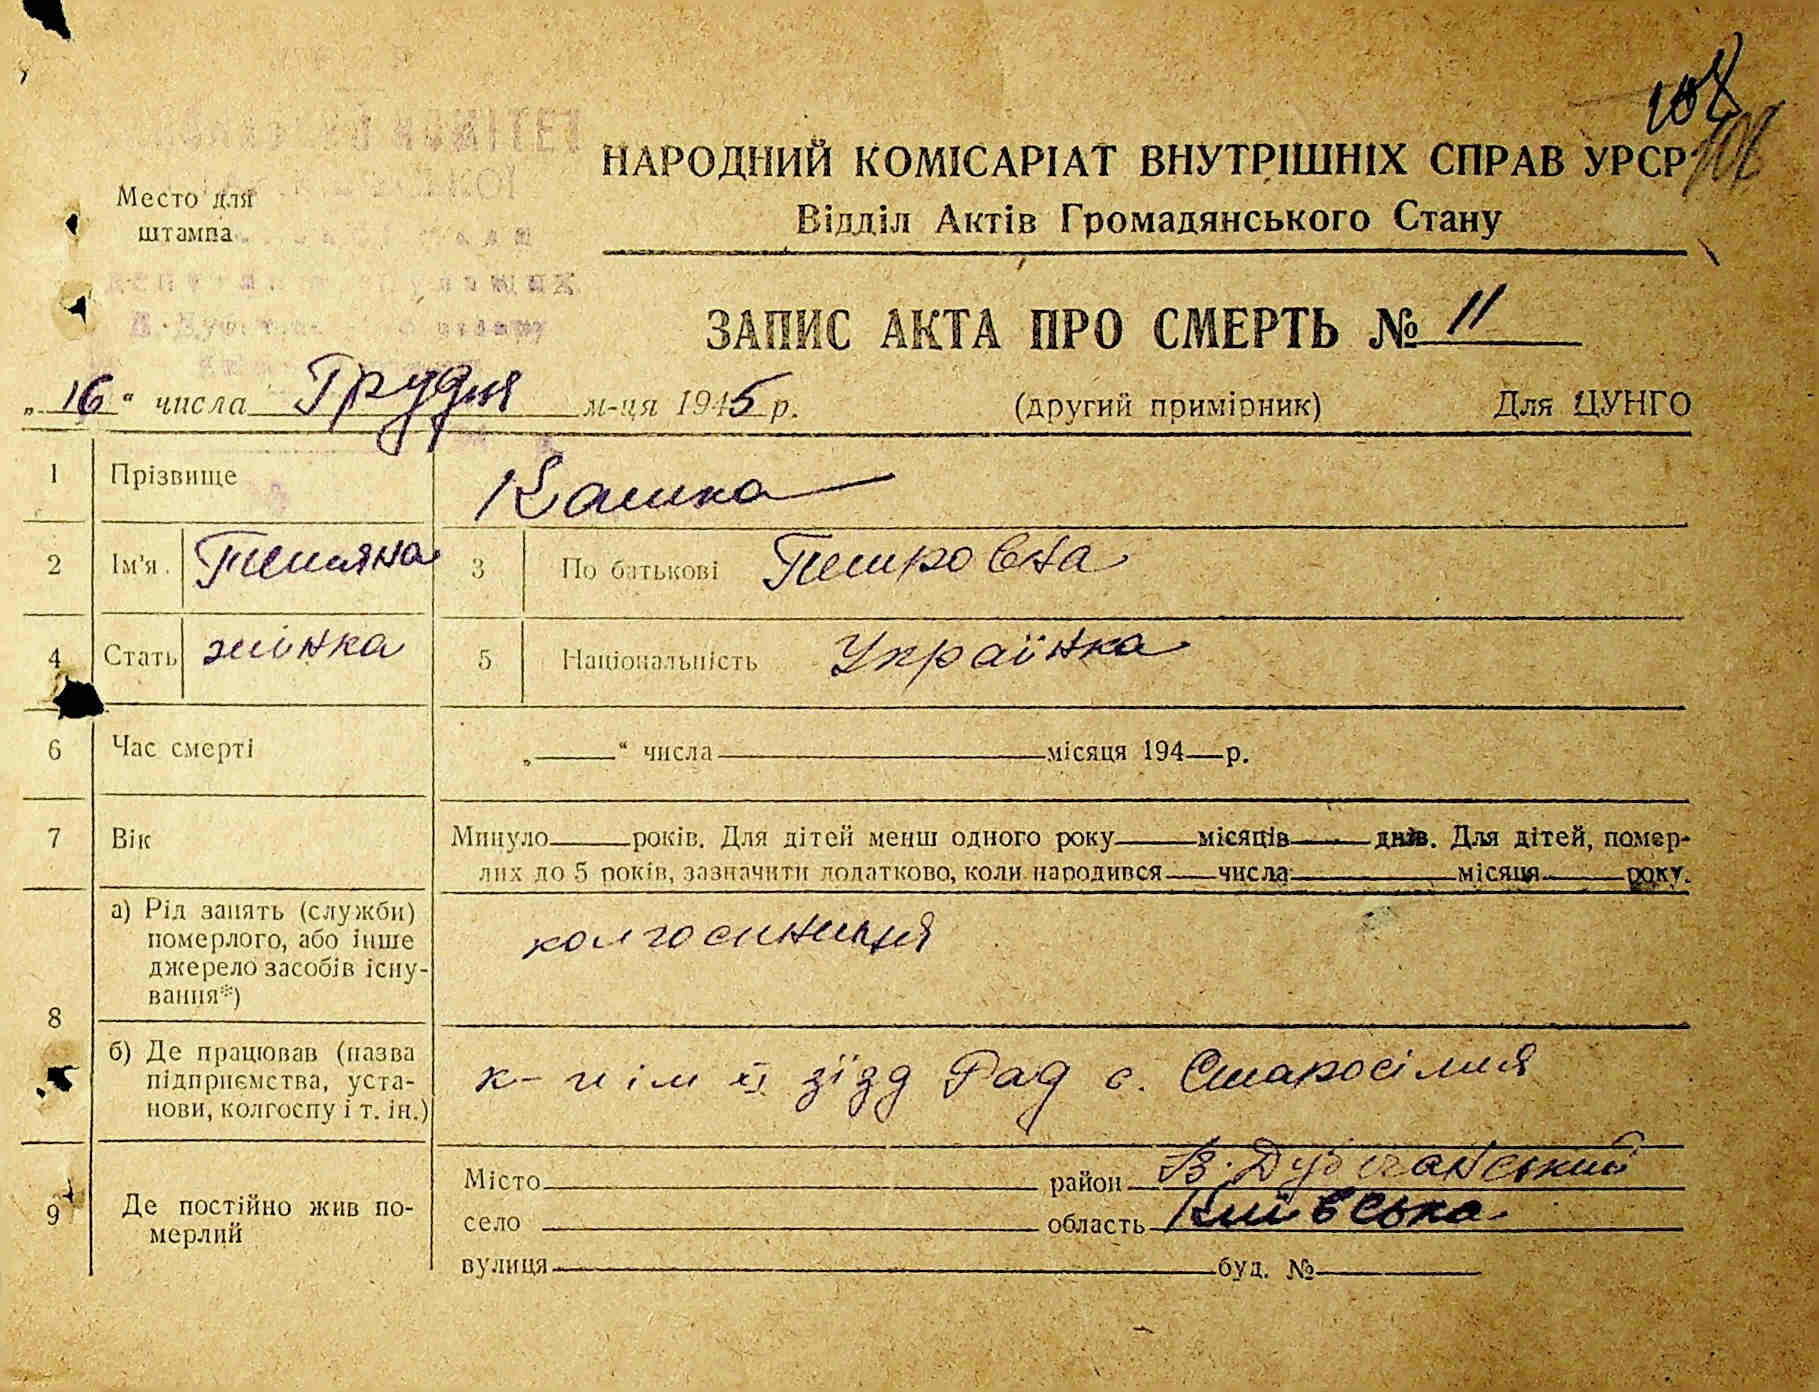 108
106
НАРОДНИЙ КОМІСАРІАТ ВНУТРІШНІХ СПРАВ УРСР
Место для штампа
Відділ Актів Громадянського Стану
ЗАПИС АКТА ПРО СМЕРТЬ № 11
„16“ числа Грудня м-ця 1945 р. (другий примірник) Для ЦУНГО
1 Прізвище Кашка
2 Ім'я Тетяна 3 По батькові Петровна
4 Стать жінка 5 Національність Українка
6 Час смерті „ “ числа місяця 194 р.
7 Вік Минуло років. Для дітей менш одного року місяців днів. Для дітей, помер-
лих до 5 років, зазначити додатково, коли народився числа місяця року.
8 а) Рід занять (служби) померлого, або інше джерело засобів існу-вання*) колгоспниця
б) Де працював (назва підприємства, уста-нови, колгоспу і т. ін.) к-п ім зїзд Рад с. Старосілля
9 Де постійно жив по-мерлий
Місто район В. Дубечанський
село область Київська
вулиця буд. №